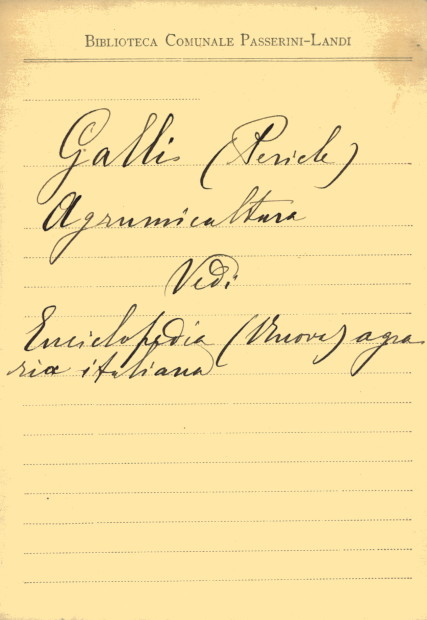 BIBLIOTECA COMUNALE PASSERINI-LANDI
Galli (Pericle)
Agrumicultura
Vedi
Enciclopedia (Nuova) agra
ria italiana